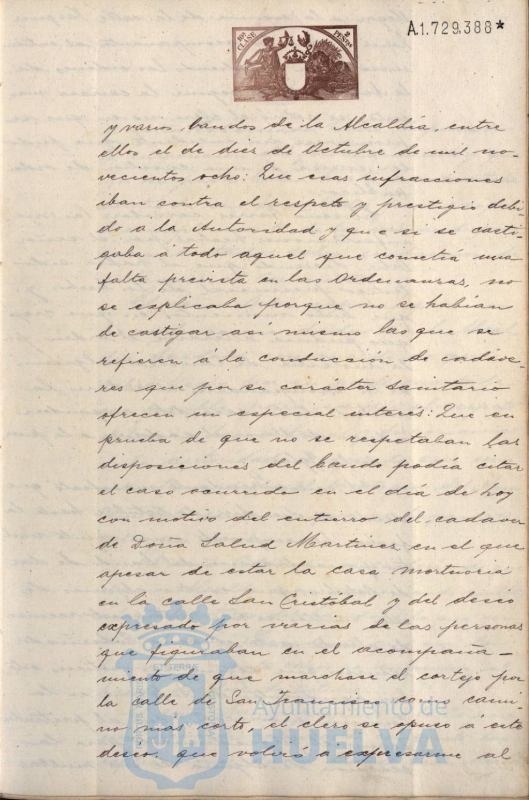 A.1.729.388*
10ª CLASE
2 PESETAS
y varios bandos de la Alcaldía, entre
ellos el de diez de Octubre de mil no-
vecientos ocho: Que esas infracciones
iban contra el respeto y prestigio debi-
do á la Autoridad y que si se casti-
gaba á todo aquel que cometiá una
falta prevista en las Ordenanzas, no
se explicaba porque no se habían
de castigar así mismo las que se
refieren á la conducción de cadáve-
res que por su carácter sanitario
ofrecen un especial interés: Que en
prueba de que no se respetaban las
disposiciones del bando podía citar
el caso ocurrido en el día de hoy
con motivo del entierro del cadaver
de Doña Salud Martinez en el que
apesar de estar la casa mortuoria
en la calle San Cristóbal y del deseo
expresado por varias de las personas
que figuraban en el acompaña-
miento de que marchase el cortejo por
la calle de San José como cami-
no más corto, el clero se opuso á este
deseo: que volvió a expresarme al
Ayuntamiento de
HUELVA